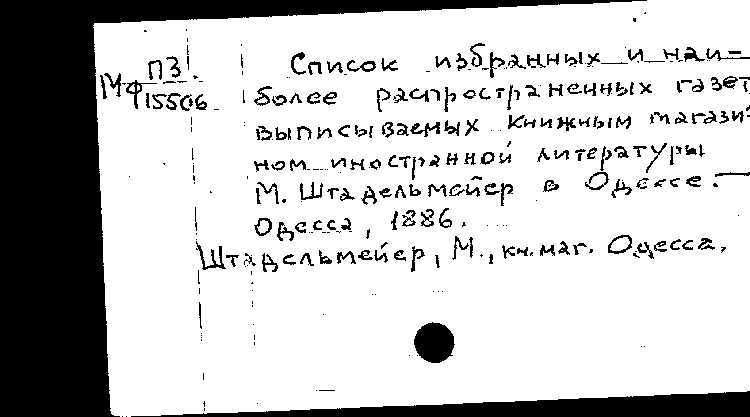 Мф П3. 15506
Список избранных и наи-
более распространенных газет
выписываемых книжным магази-
ном иностранной литературы
М. Штадельмейер в Одессе. —
Одесса, 1886.
Штадельмейер, М., кн. маг. Одесса.